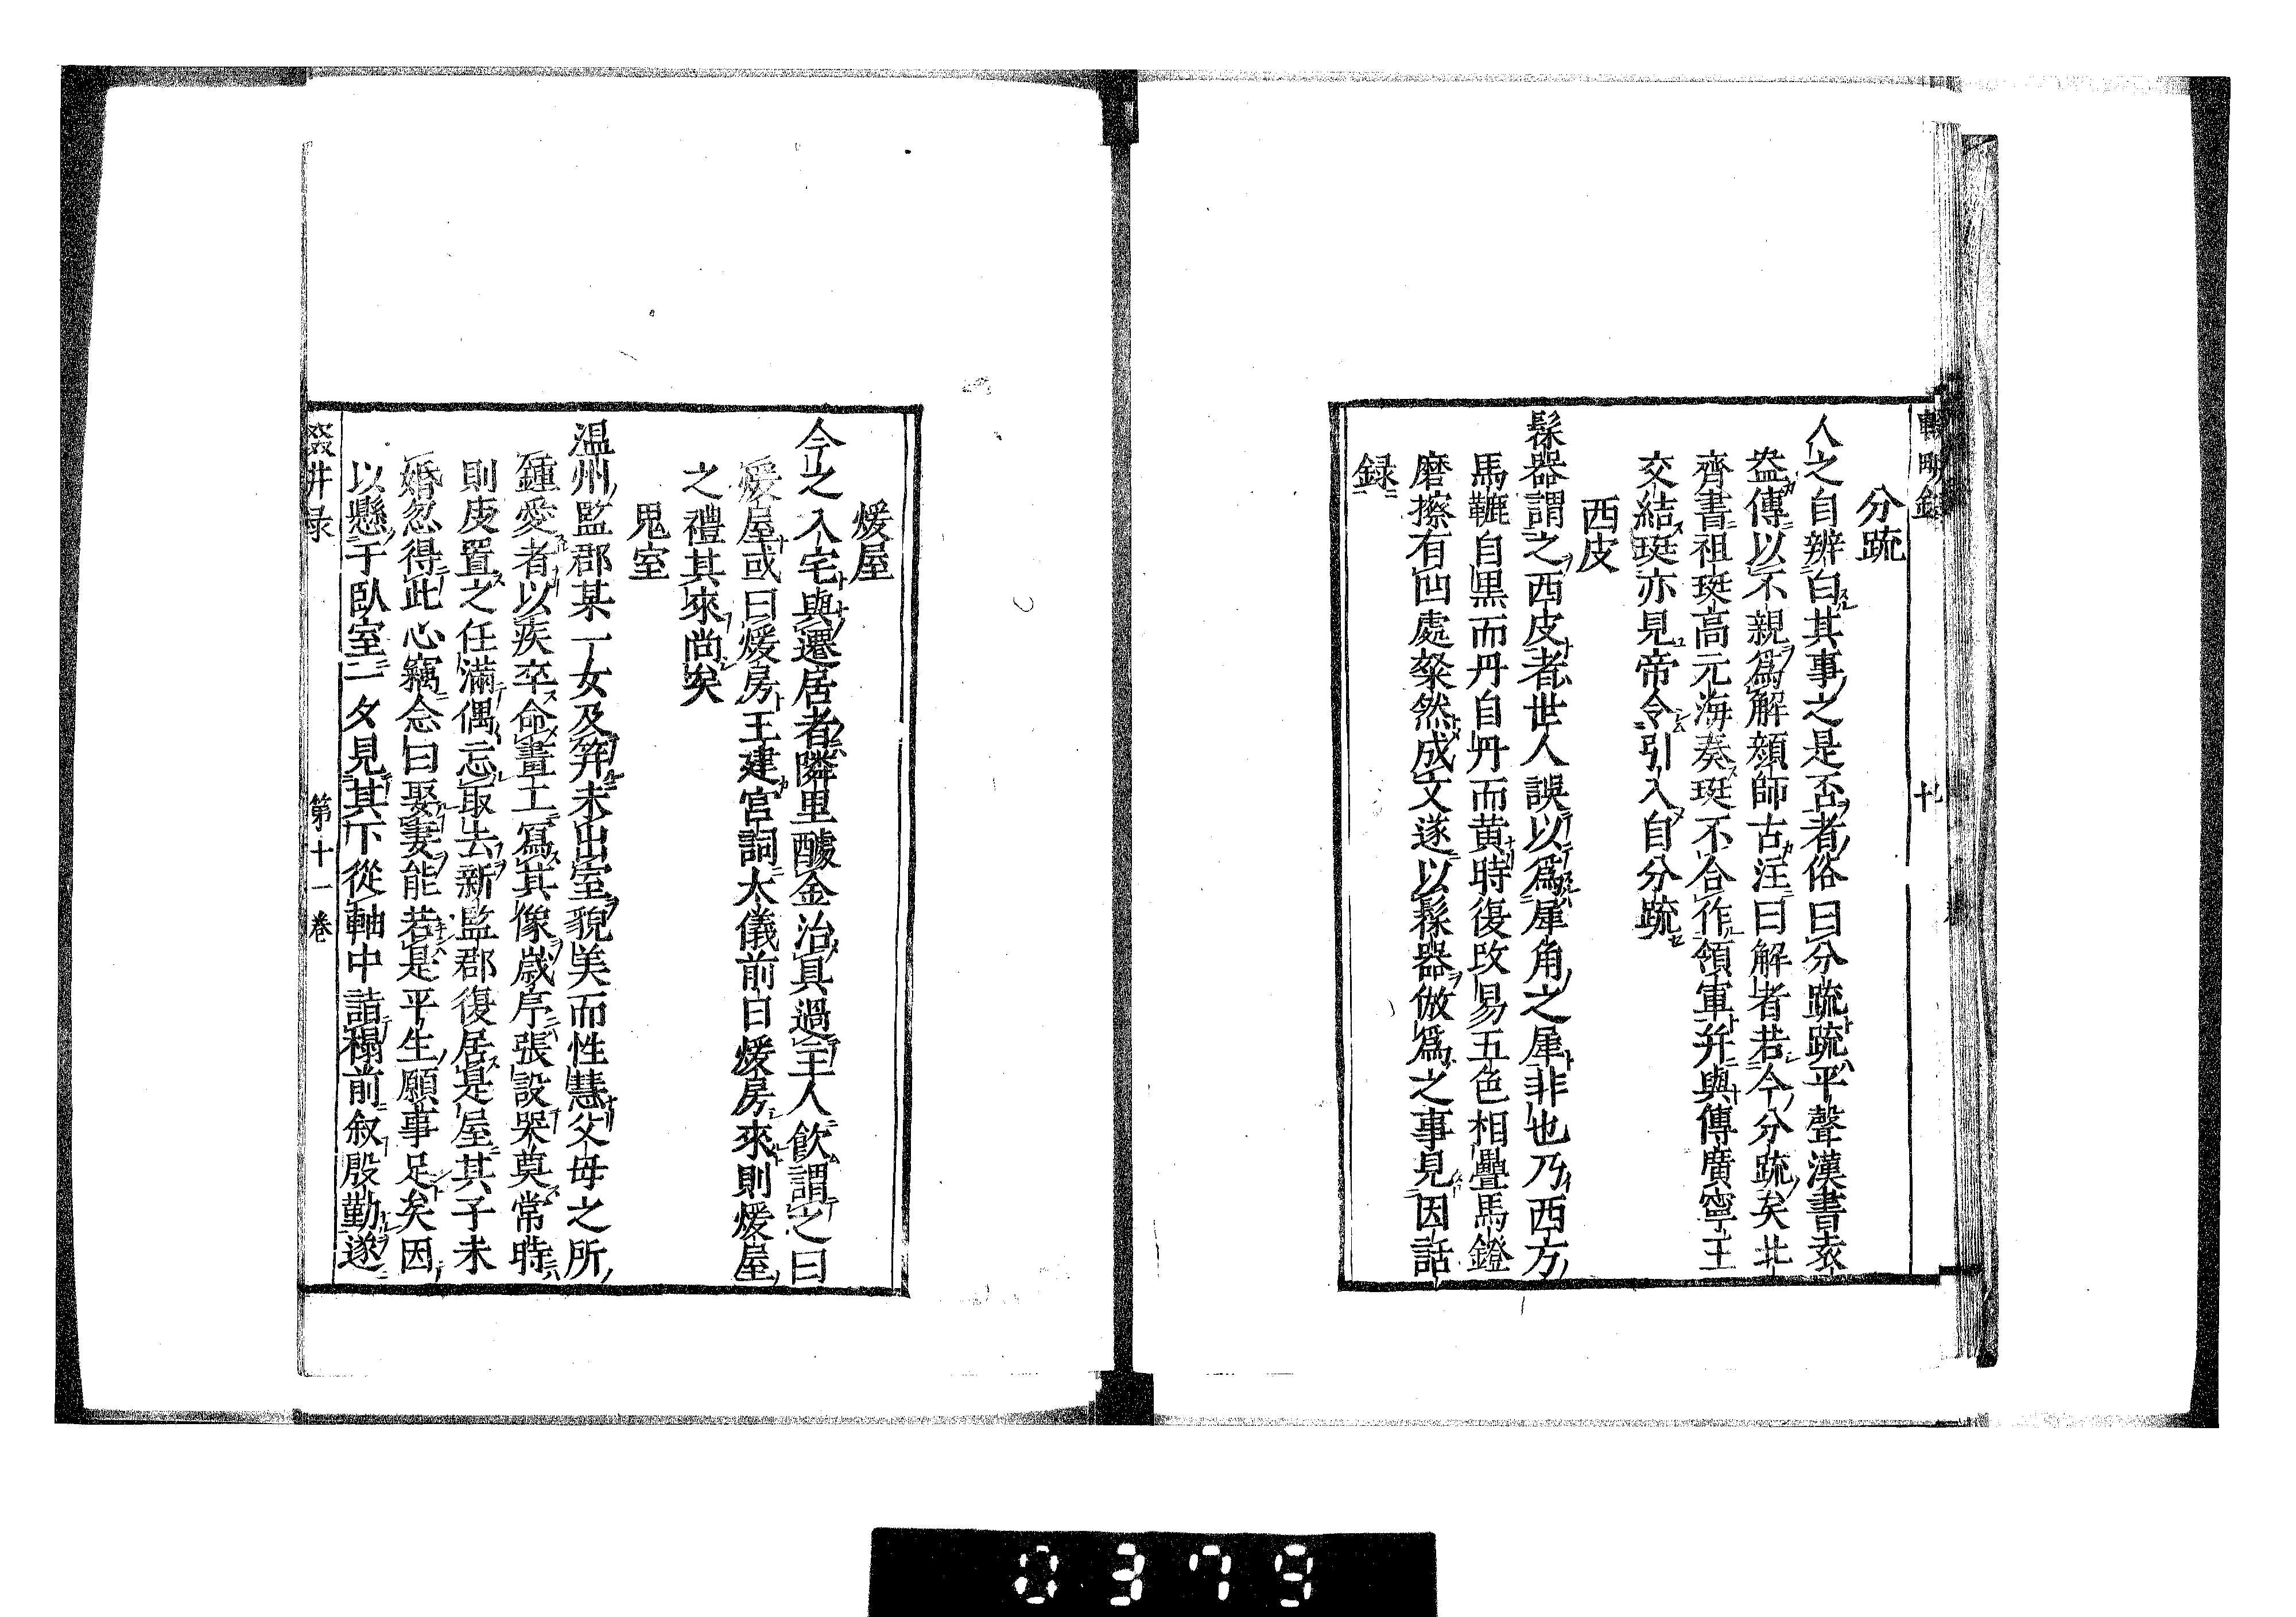 分疏
人之自辨白其事之是否者俗曰分疏疏平聲漢書袁
盎傳以不親爲解顔師古注曰解者若今分疏矣北
齊書祖珽高元海奏珽不合作領軍并與傳廣寧王
交結珽亦見帝令引入自分疏
西皮
髹器謂之西皮者世人誤以爲犀角之犀非也乃西方
馬韉自黒而丹自丹而黄時復改易五色相疊馬鐙
磨擦有凹處粲然成文遂以髹器倣爲之事見因話
録
煖屋
今之入宅與遷居者隣里醵金治具過主人飮謂之曰
煖屋或曰煖房王建宮詞太儀前日煖房來則煖屋
之禮其來尚矣
鬼室
温州監郡某一女及笄未出室貌美而性慧父母之所
鍾愛者以疾卒命畫工冩其像歳序張設哭奠常時
則庋置之任滿偶忘取去新監郡復居是屋其子未
婚忽得此心竊念曰娶妻能若是平生願事足矣因
以懸于臥室一夕見其下從軸中詣榻前叙殷勤遂
第十一卷
0379